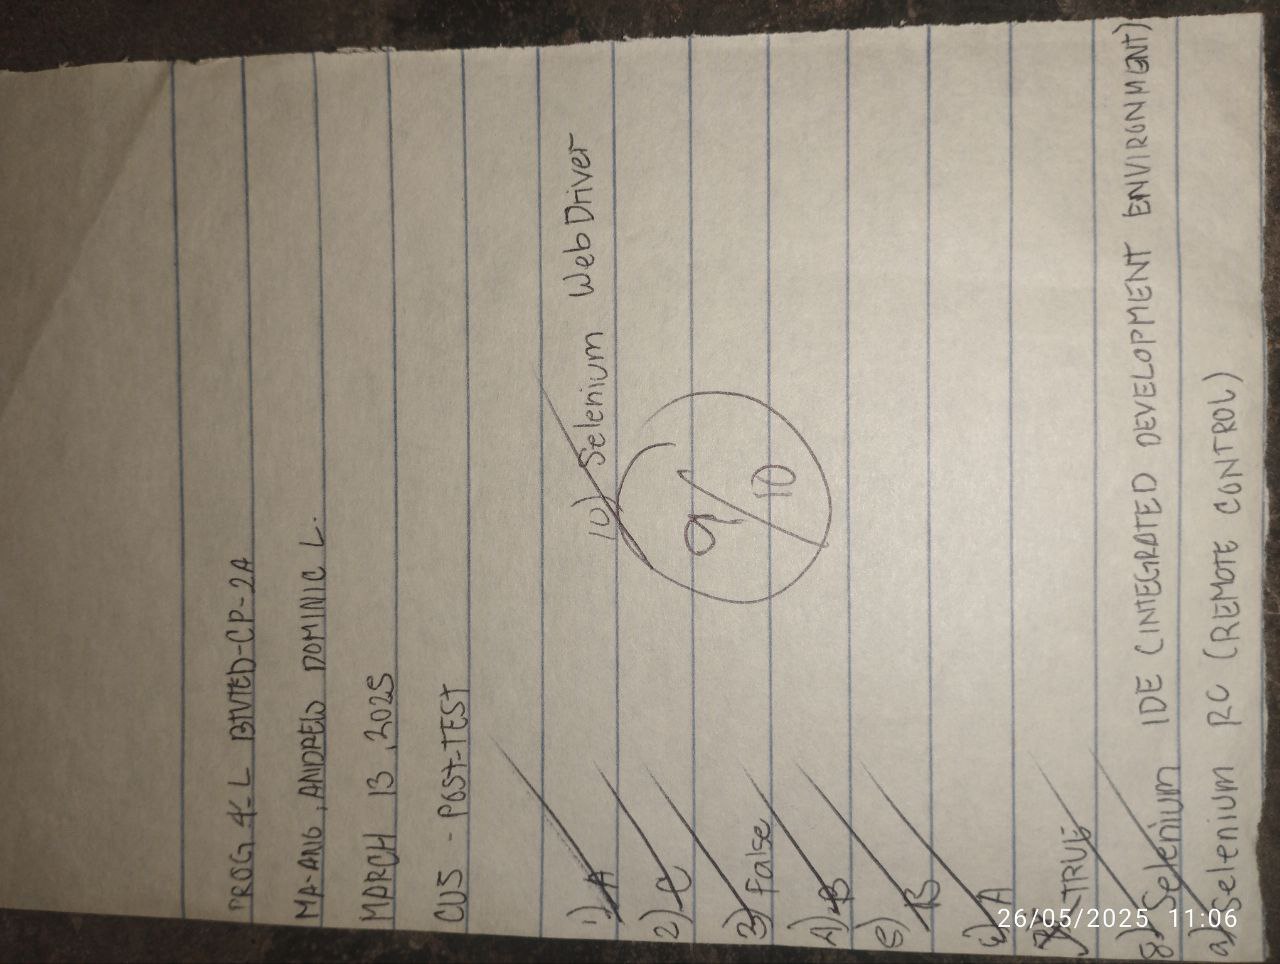 PROG 4-L BTVTED-CP-2A
MA-ANG, ANDREW DOMINIC L.
MARCH 13, 2025
CU5 - POST-TEST
1) A
2) C
3) False
4) B
5)
B
6) A
TRUE
8) Selenium IDE (INTEGRATED DEVELOPMENT ENVIRONMENT)
9) Selenium RC (REMOTE CONTROL)
10) Selenium WebDriver
9/10
26/05/2025 11:06